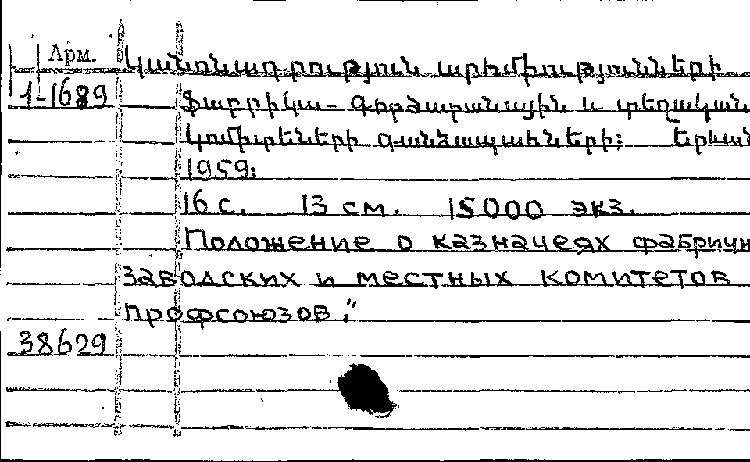 Арм.
Կանոնադրություն արհմիությունների
1-1689
Ֆաբրիկա-գործարանային և տեղական
կոմիտեների գանձապահների: Երևան
1959:
16 с. 13 см. 15000 экз.
Положение о казначеях фабричн
заводских и местных комитетов
профсоюзов."
38629